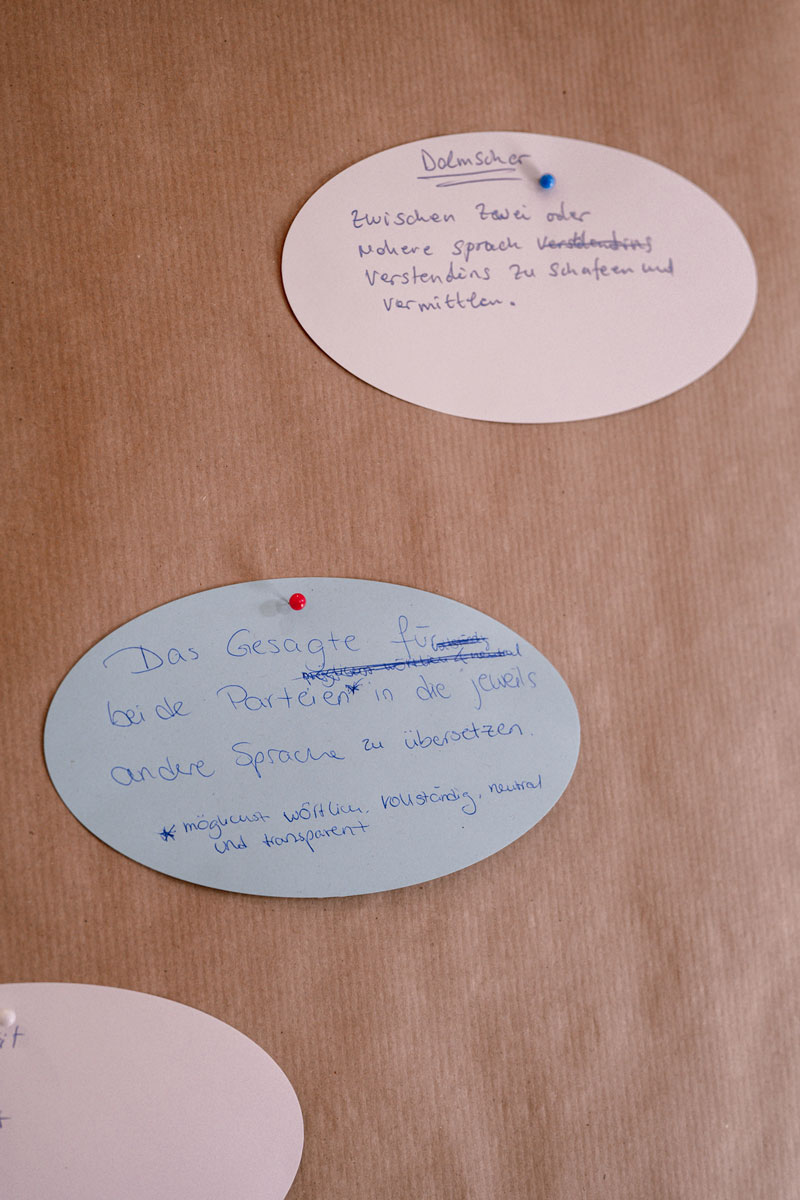 Dolmscher
Zwischen zwei oder
Mehere sprach verstdendnis
verstendins zu schafeen und
vermittlen.
Das Gesagte für
möglichst wörtlich & neutral
beide Parteien* in die jeweils
andere Sprache zu übersetzen.
* möglichst wörtlich, vollständig, neutral
und transparent